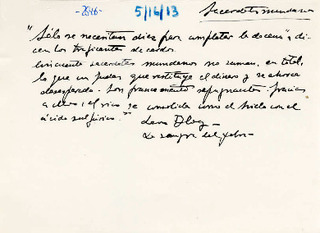 -2616- 5/16/13 Sacerdotes mundanos
"Sólo se necesitan diez para completar la docena", di-
cen los traficantes de cerdos.
sacerdotes mundanos no suman, en total,
lo que un judas que restituye el dinero y se ahorca
desesperado. Son francamente repugnantes. Gracias
a ellos, el rico se consolida como el hielo con el
ácido sulfúrico."
Leon Bloy -
La sangre del pobre -